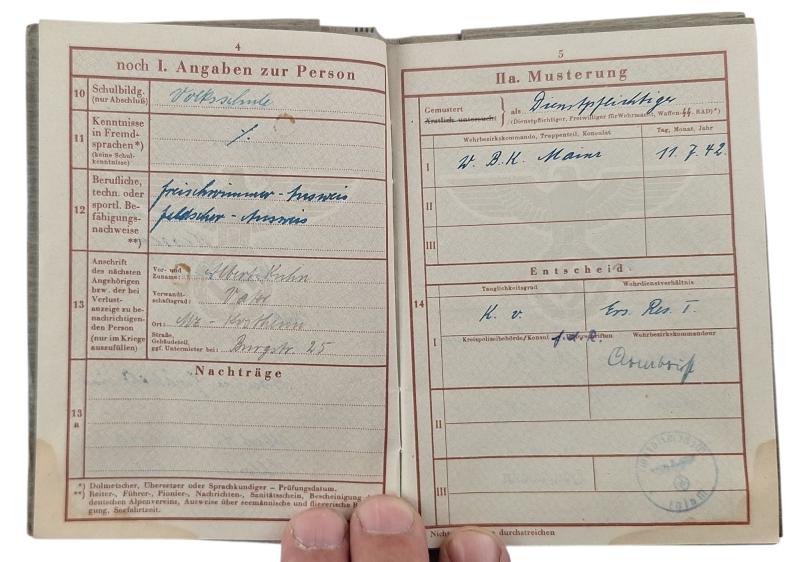 4
noch I. Angaben zur Person
10
Schulbildg.
(nur Abschluß)
Volksschule
11
Kenntnisse
in Fremd-
sprachen*)
(keine Schul-
kenntnisse)
12
Berufliche,
techn. oder
sportl. Be-
fähigungs-
nachweise
**)
Freischwimmer-Ausweis
Feldscher-Ausweis
13
Anschrift
des nächsten
Angehörigen
bzw. der bei
Verlust-
anzeige zu be-
nachrichtigen-
den Person
(nur im Kriege
auszufüllen)
Vor- und
Zuname:
Albert Kuhn
Verwandt-
schaftsgrad:
Vater
Ort:
Mz-Kostheim
Straße,
Gebäudeteil,
ggf. Untermieter bei:
Burgstr. 25
Nachträge
13
a
*) Dolmetscher, Übersetzer oder Sprachkundiger – Prüfungsdatum.
**) Reiter-, Führer-, Pionier-, Nachrichten-, Sanitätsschein, Bescheinigung
deutschen Alpenvereins, Ausweise über seemännische und fliegerische
gung, Seefahrtzeit.
5
IIa. Musterung
Gemustert
Ärztlich untersucht
als Dienstpflichtiger
(Dienstpflichtiger, Freiwilliger für Wehrmacht, Waffen-SS, RAD)*)
Wehrbezirkskommando, Truppenteil, Konsulat
Tag, Monat, Jahr
I
W. B. K. Mainz
11. 7. 42.
II
III
Entscheid
14
Tauglichkeitsgrad
Wehrdienstverhältnis
K. v.
Ers. Res. I.
I
Kreispolizeibehörde/Konsul
f.d.R.
Wehrbezirkskommandeur
II
III
durchstreichen